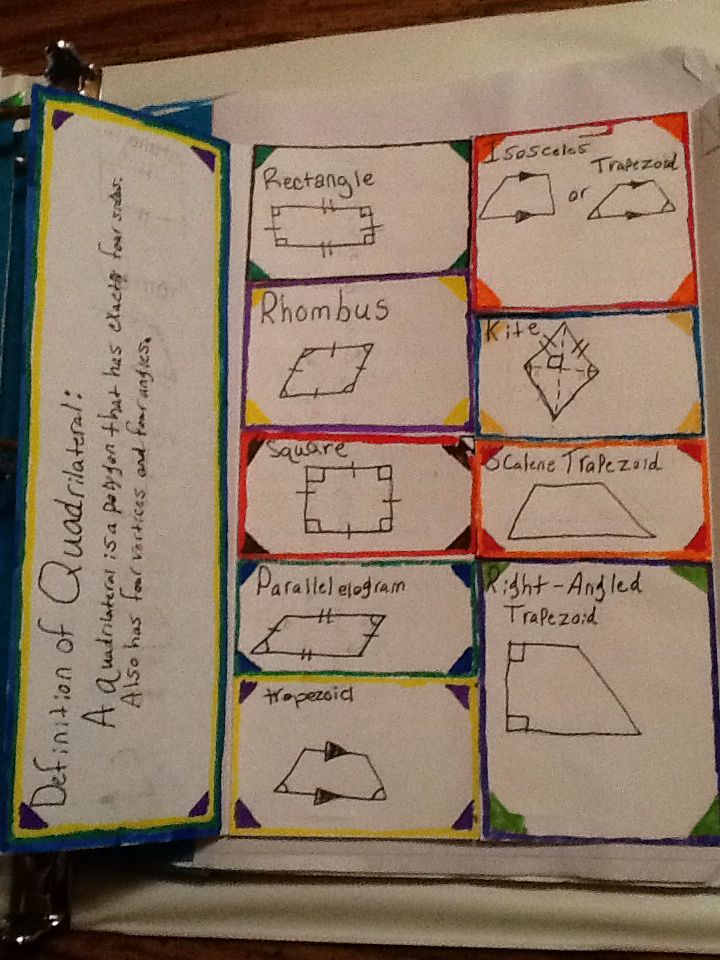 Definition of Quadrilateral:
A quadrilateral is a polygon that has exactly four sides.
Also has four vertices and four angles.
Rectangle
Rhombus
Square
Parallelelogram
trapezoid
Isosceles
Trapezoid
or
Kite
Scalene Trapezoid
Right-Angled
Trapezoid